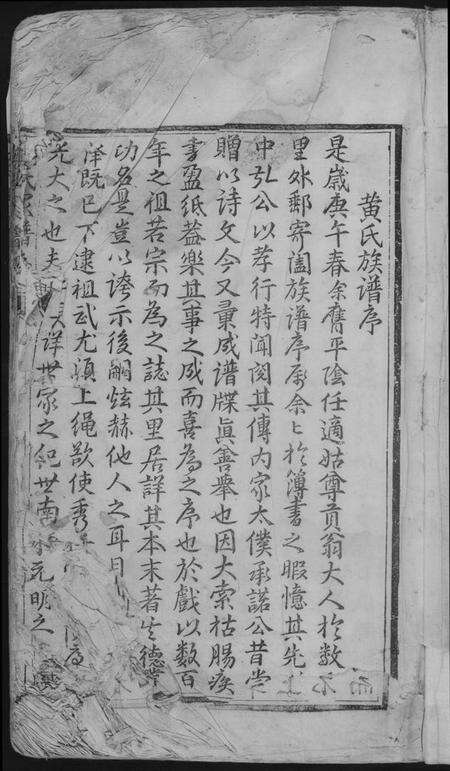 黄氏族谱序
是歲庚午春余膺平陰任適姑尊貢翁大人扵數
里外郵寄闔族譜序屬余〻扵簿書之暇憶其先
中弘公以孝行特聞閱其傳内家太僕承諾公昔嘗
贈以詩文今又彙成譜牒眞善舉也因大索枯腸疾
書盈紙葢樂其事之成而喜為之序也於戲以數百
年之徂若宗而為之誌其里居詳其本末著其德業
功名是豈以誇示後嗣炫赫他人之耳目
澤既已下逮祖武尤須上繩欲使秀
光大之也夫 詳世家之紀世南 元明之